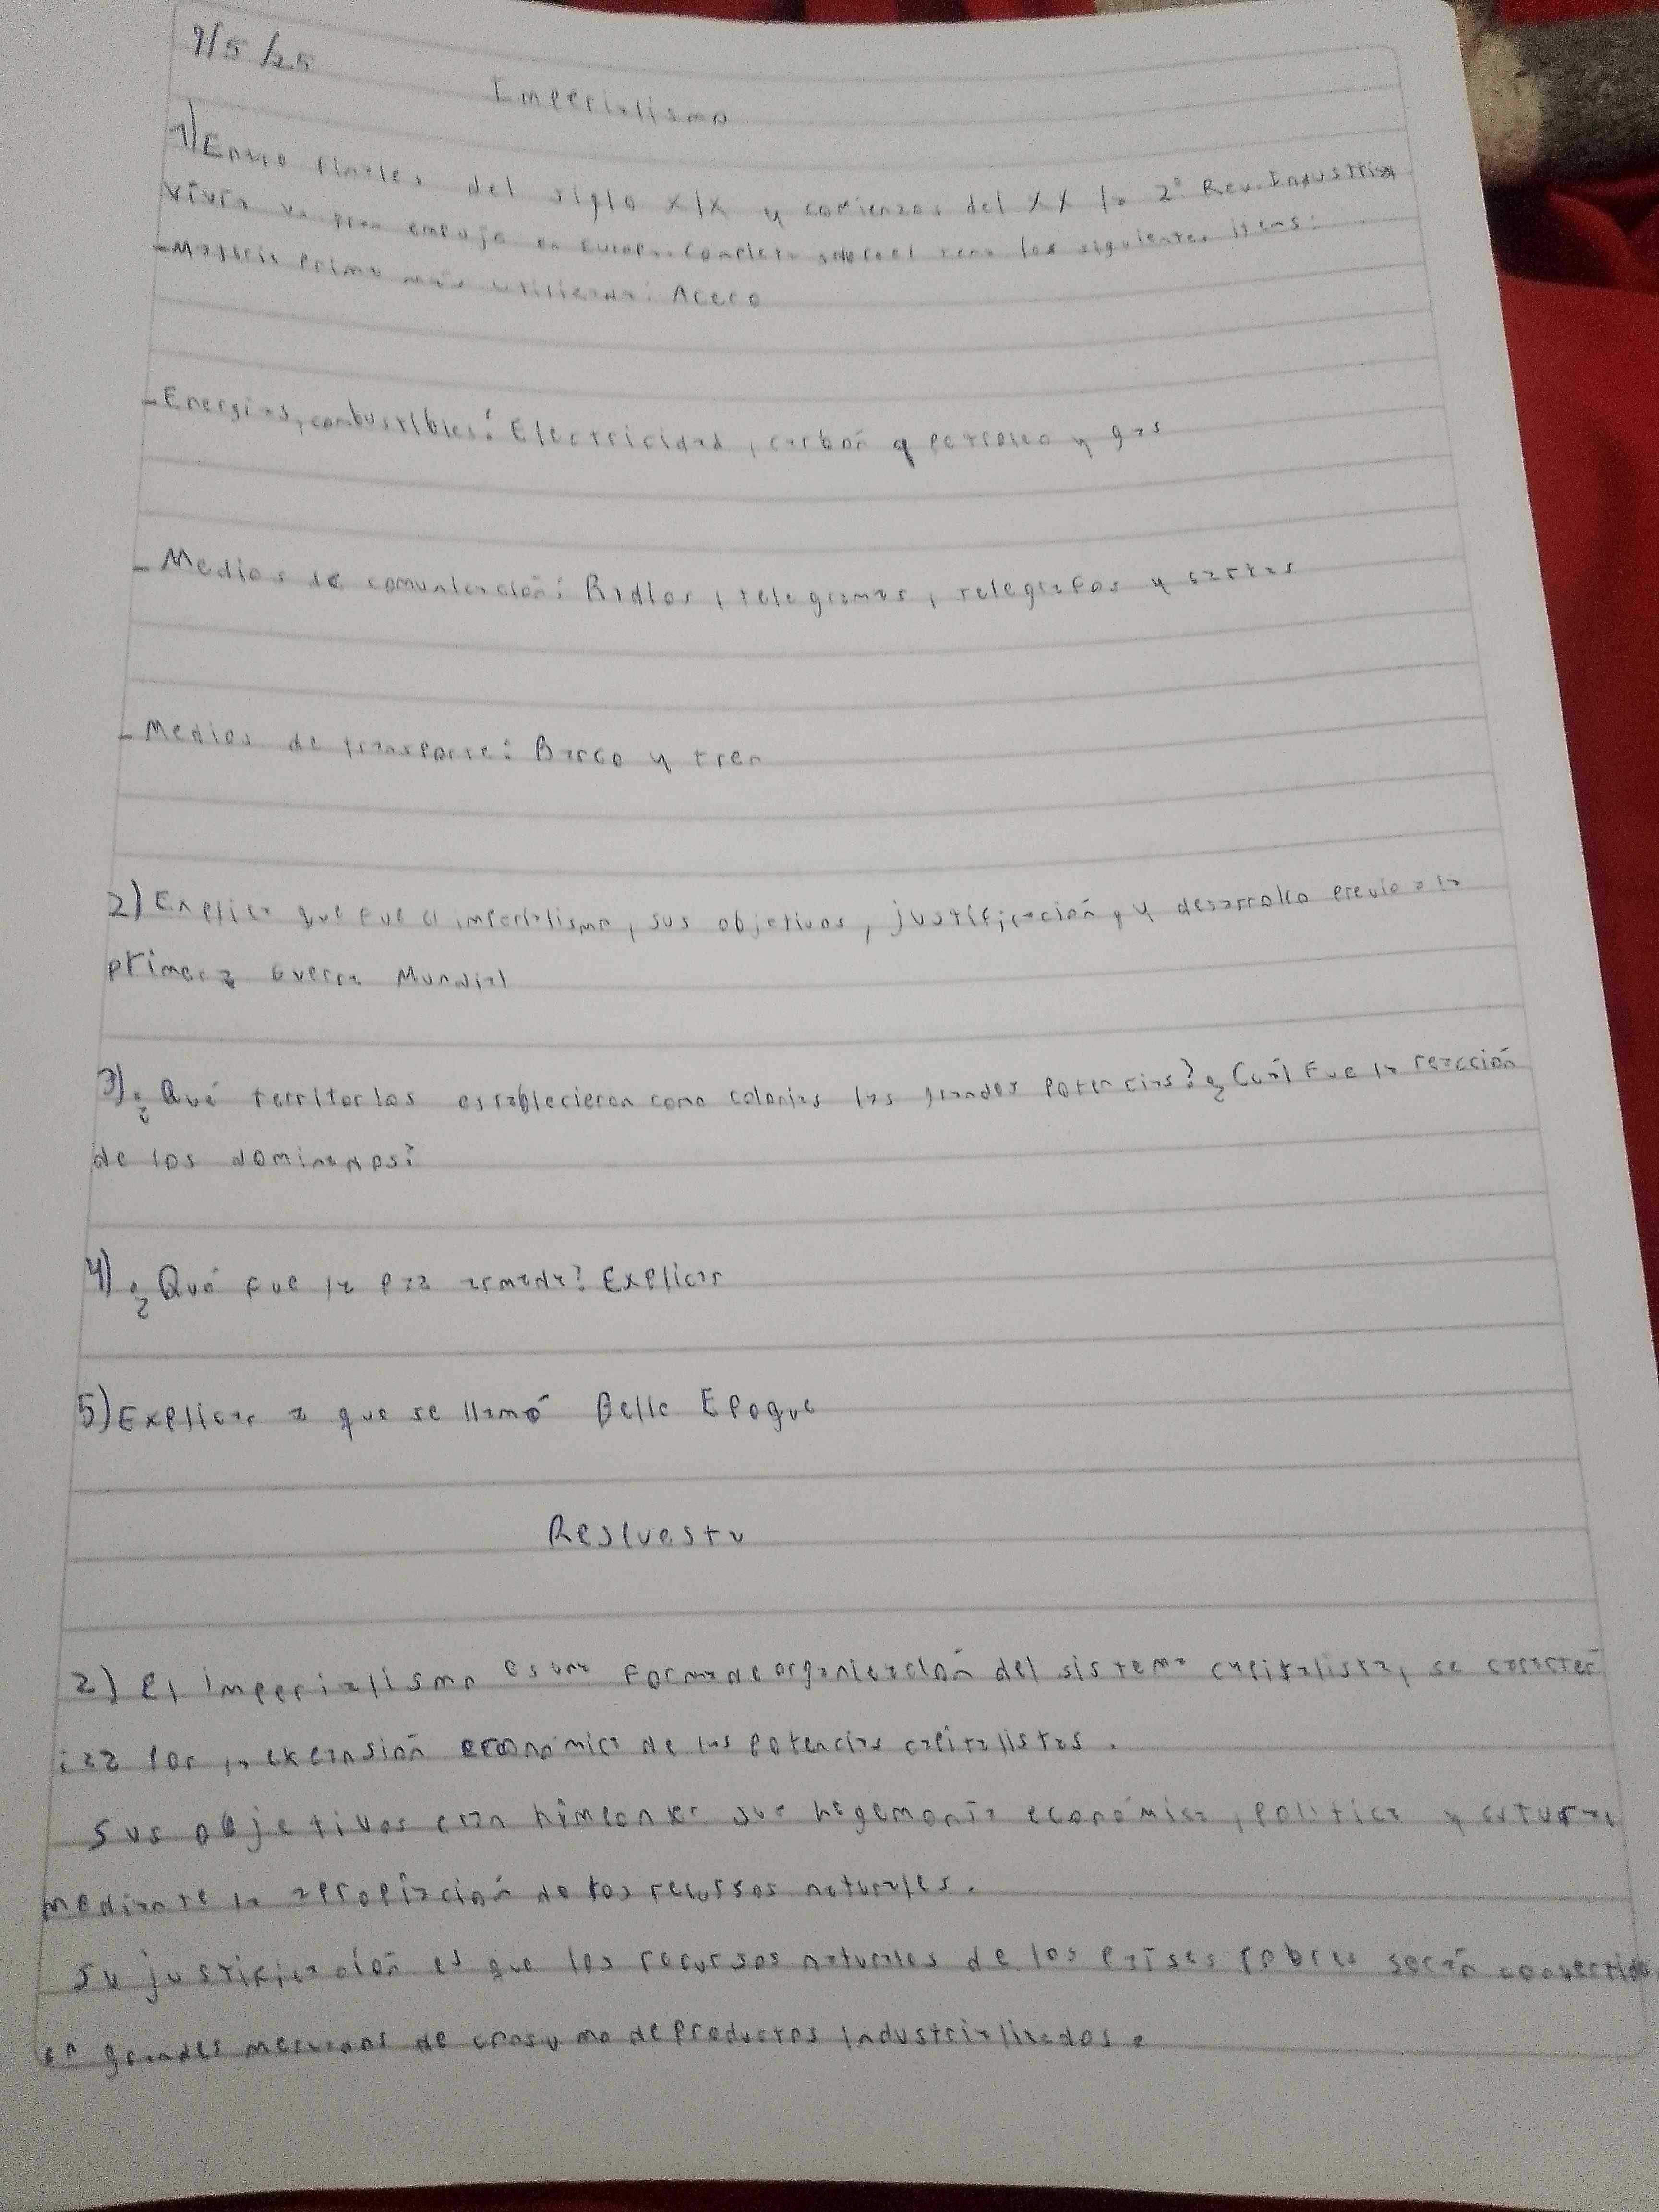 9/5/25
Imperialismo
1) Entre finales del siglo XIX y comienzos del XX la 2° Rev. Industrial
vivía un gran empuje en Europa. Completa sobre el tema los siguientes items:
- Materia prima más utilizada: Acero
- Energías, combustibles: Electricidad, carbón, petroleo y gas
- Medios de comunicación: Radios, telegramas, telegrafos y cartas
- Medios de transporte: Barco y tren
2) Explica que fue el imperialismo, sus objetivos, justificación, y desarrollo previo a la
primera Guerra Mundial
3) ¿Qué territorios establecieron como colonias las grandes potencias? ¿Cuál fue la reacción
de los dominados?
4) ¿Qué fue la paz armada? Explicar
5) Explicar a que se llamó Belle Epoque
Respuesta
2) El imperialismo es una forma de organización del sistema capitalista, se caracter
iza por la expansión económica de las potencias capitalistas.
Sus objetivos eran sus hegemonía económica, politica y
mediante la apropiación de los recursos naturales.
Su justificación es que los recursos naturales de los países pobres serán convertidos
en grandes mercados de consumo de productos industrializados.